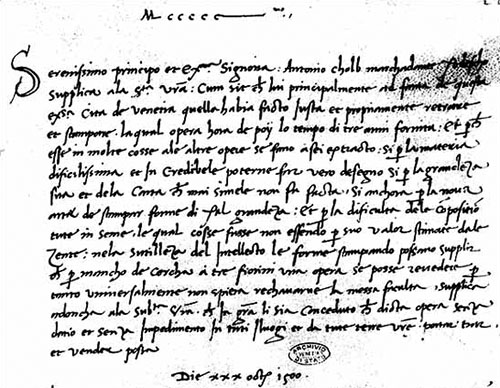 Mccccc
Serenissimo principo et Ex.ma Signoria: Antonio cholb marchadante todescho
Supplica ala S.ta vra: Cum sit ch lui principalmente ad fama de questa
exsa Cita de venetia quella habia facto Justa et propriamente retrare
et stampare: la qual opera hora de poy lo tempo di tre anni fornita: Et p ch
esse in molte cosse ale altre opere se fano assai extracto: si p la materia
dificilissima et In Credibele poterne far vero desegno Si p la grandeza
sua et dela Carta ch mai simele non fu facta. Si anchora p la nova
arte de stampar forme di tal grandeza: Et p la dificulta dele Composicion
tute in seme: le qual cosse fosse non essendo p suo valor stimate dale
Zente: nela sutilleza del Intellecto le forme stampando possano supplir
ch p mancho de Cercha à tre fiorini una opera se posse revedere p
tanto universalmente non spiera rechavarne la messa faculta: Supplica
adoncha ala Sub.ta vra. gra li sia Conceduto ch dicta opera senza
datio et senza Impedimento In tuti i luogi et da tute terre vre. portar trar
et vender possa
ARCHIVIO
DI STATO
Die xxx octb 1500.